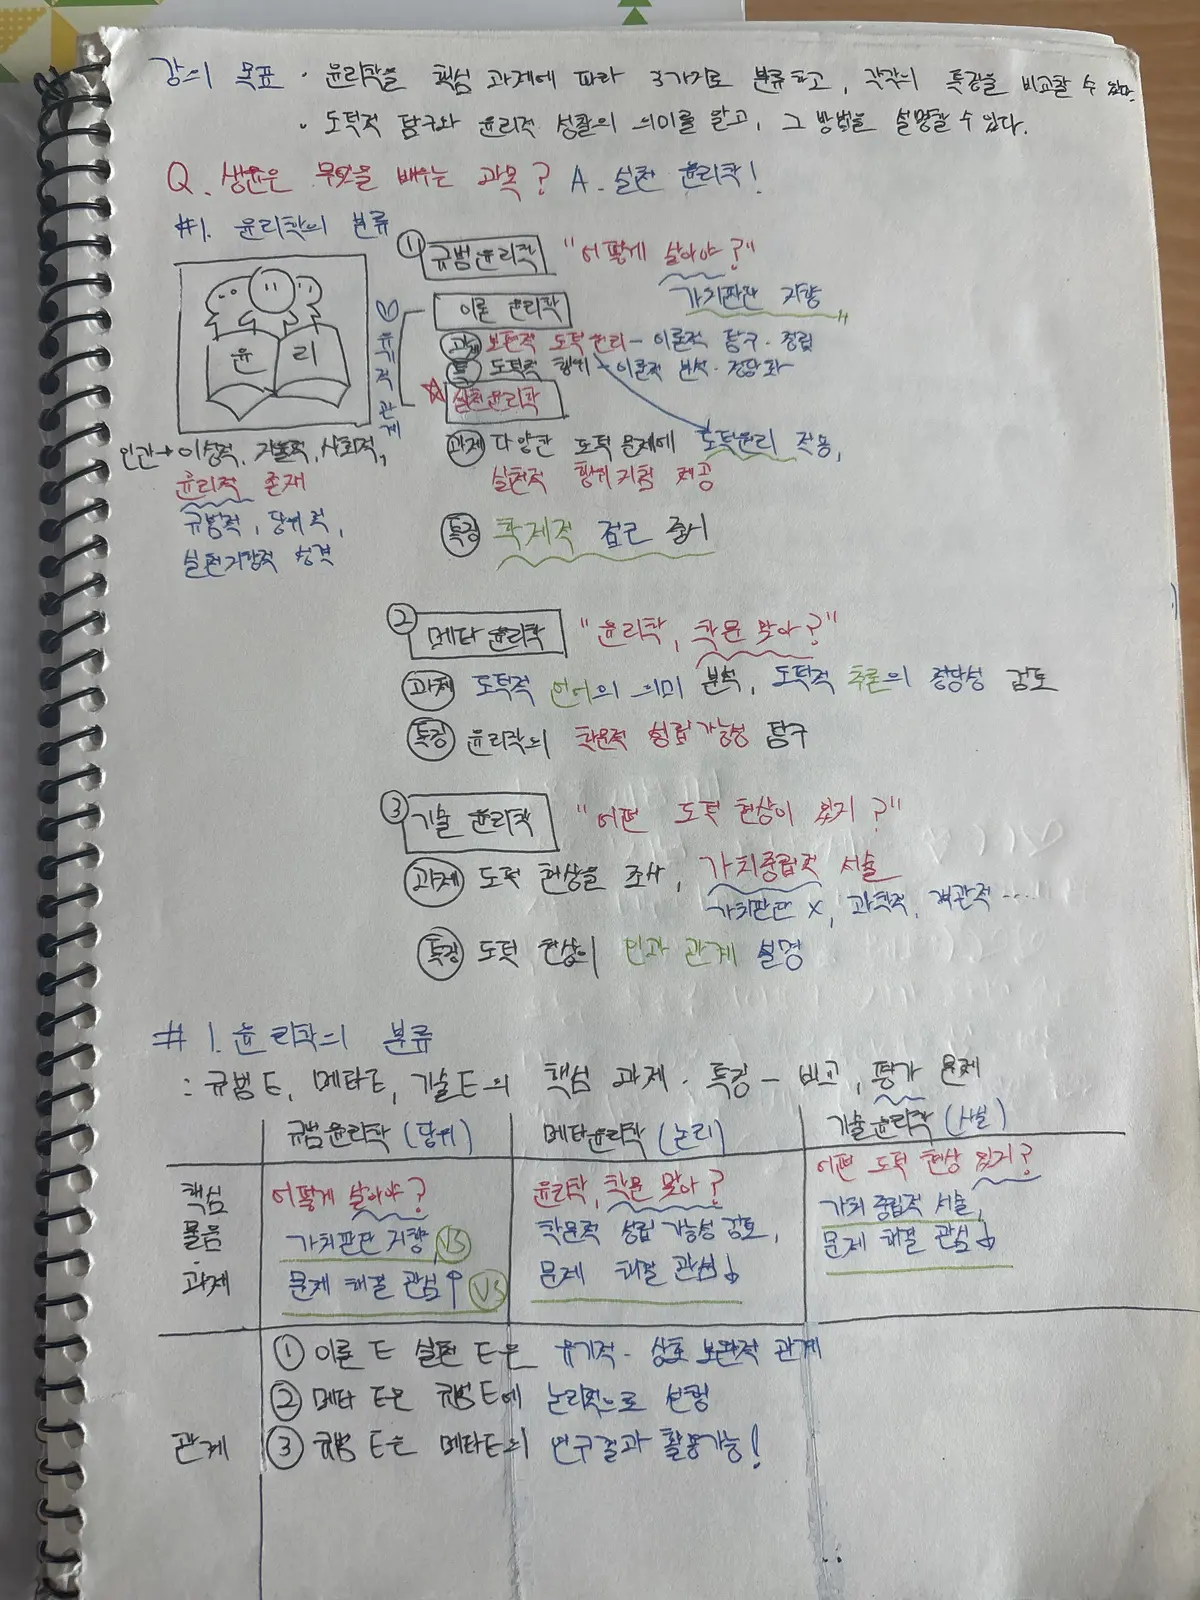 강의 목표 · 윤리학을 핵심 과제에 따라 3가지로 분류하고, 각각의 특징을 비교할 수 있다.
· 도덕적 탐구와 윤리적 성찰의 의미를 알고, 그 방법을 설명할 수 있다.
Q. 생윤은 무엇을 배우는 과목? A. 실천 윤리학!
#1. 윤리학의 분류
윤 리
인간→이성적, 기술적, 사회적,
윤리적 존재
규범적, 당위적,
실천지향적 성격
유기적 관계
① 규범윤리학 "어떻게 살아야?"
가치판단 지향
이론 윤리학
과제 보편적 도덕 원리 - 이론적 탐구·정립
특 도덕적 행위 - 이론적 분석·정당화
☆ 실천윤리학
과제 다양한 도덕 문제에 도덕원리 적용,
실천적 행위지침 제공
특징 학제적 접근 중시
② 메타윤리학 "윤리학, 학문 맞아?"
과제 도덕적 언어의 의미 분석, 도덕적 추론의 정당성 검토
특징 윤리학의 학문적 성립가능성 탐구
③ 기술 윤리학 "어떤 도덕 현상이 있지?"
과제 도덕 현상을 조사, 가치중립적 서술
가치판단 X, 과학적, 객관적 ...
특징 도덕 현상의 인과 관계 설명
# 1. 윤리학의 분류
: 규범E, 메타E, 기술E의 핵심 과제·특징 - 비교, 평가 문제
규범윤리학(당위) 메타윤리학(논리) 기술윤리학(사실)
핵심 물음 과제
어떻게 살아야?
가치판단 지향 VS
문제 해결 관심↑ VS
윤리학, 학문 맞아?
학문적 성립 가능성 검토,
문제 해결 관심↓
어떤 도덕 현상 있지?
가치 중립적 서술,
문제 해결 관심↓
관계
① 이론 E 실천 E은 유기적·상호 보완적 관계
② 메타 E은 규범E에 논리적으로 선행
③ 규범 E은 메타E의 연구결과 활용가능!